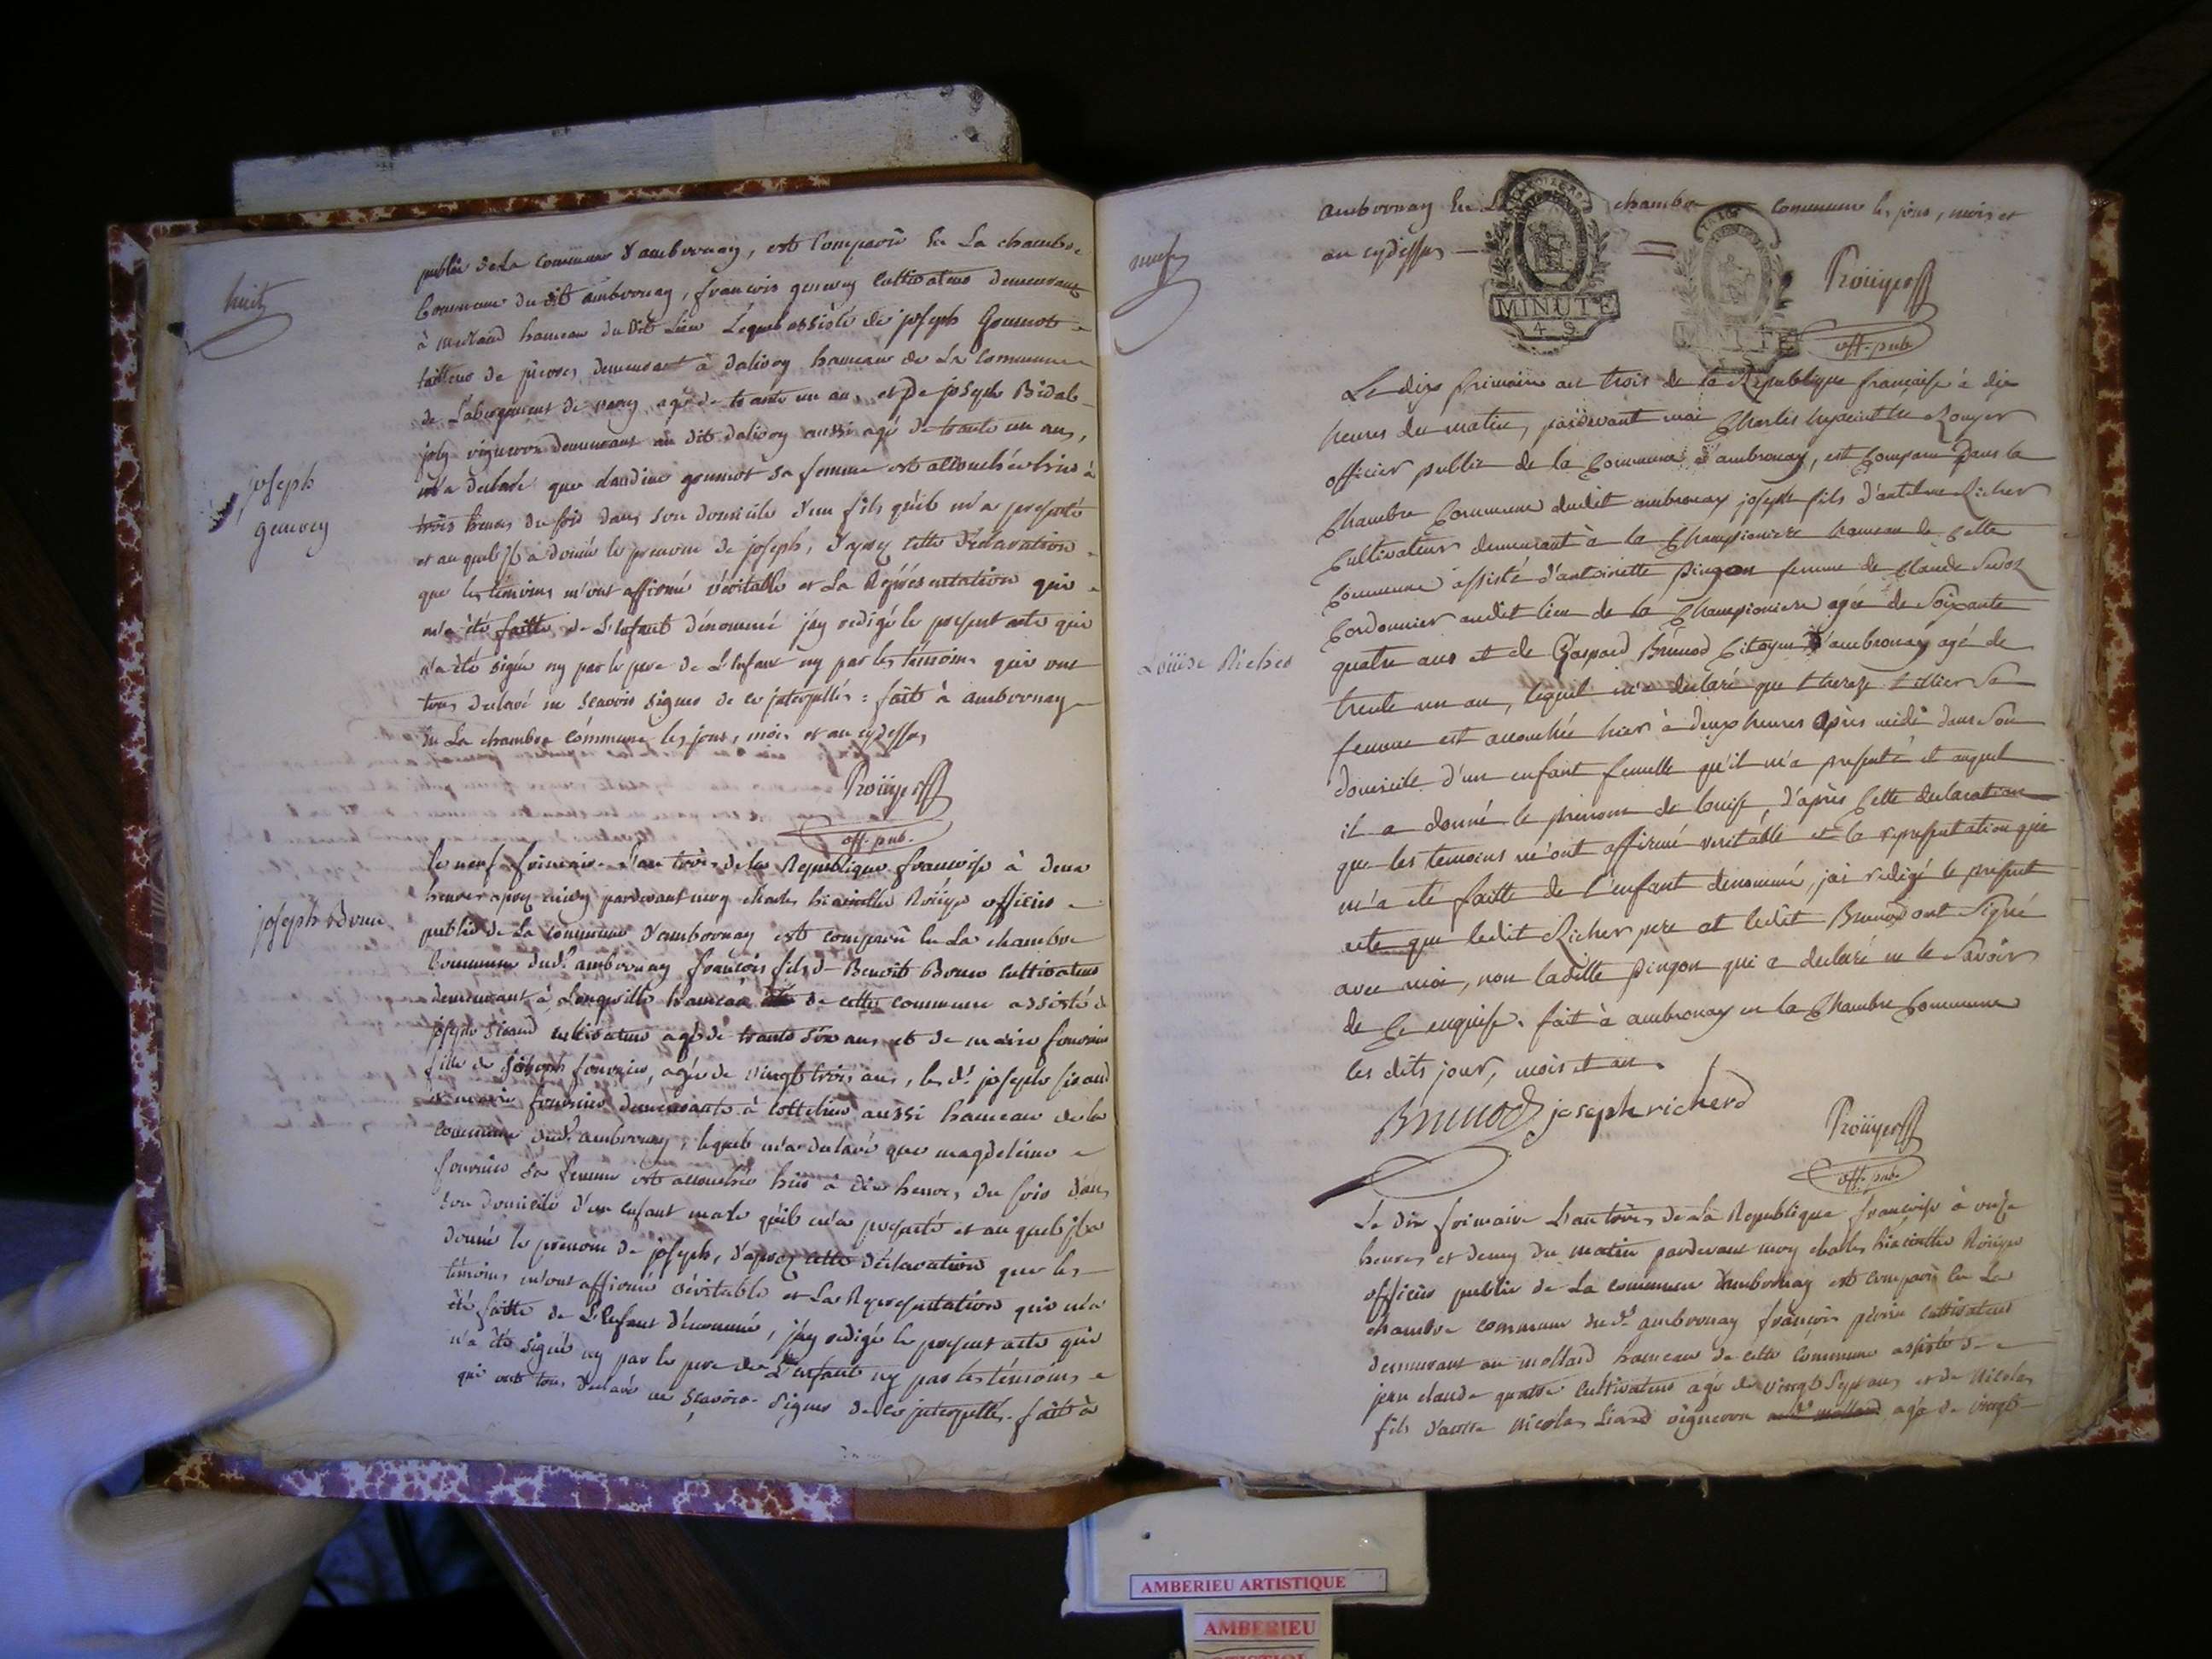 huit
publiv de la Commune d'ambronay, est Comparû En La chambre
Commune du dit ambronay, françois genevey Cultivateur demeurant
à hameau du dit Lieu Lequel assisté de joseph Gounot
tailleur de pierres, demeurant à dalivoy hameau de La Commune
de L'abergement de varey, agé de trante un ans, et De joseph Bidal
joly vigneron demeurant au dit dalivoy aussi agé de trante un ans,
m'a déclaré que claudine gounot sa femme est accouchée hier à
trois heures du soir dans son domicile d'un fils qu'il m'a presenté
et au quel Il a donné le prenom de joseph, d'aprez cette déclaration
que les temoins m'ont affirmé véritable et La Représentation qui
m'a été faitte de L'enfant dénommé j'ay redigé le present acte qui
n'a été signé ny par le pere de L'enfant ny par les temoins qui ont
tous declaré ne scavoir signer de ce interpellés : fait à ambronay
En La chambre commune les jour, mois et an cydessus
joseph
genevey
Roüyer
off. pub.
le neuf frimaire L'an trois de la Republique francoise à deux
heures aprez midy pardevant moy charles hiacinthe Roüyer officier
publiv de La commune d'ambronay est comparû En La chambre
Commune dud.t ambronay françois fils d Benoit Cultivateur
demeurant à Longeville hameau de cette commune assisté de
joseph sicaud cultivateur agé de trante ans et de marie fournier
fille de joseph fournier, agée de vingt trois ans, les d.t joseph sicaud
et marie fournier demeurants à cottelieu aussi hameau de la
commune dud.t ambronay, lequel m'a declaré que magdeleine
fournier sa femme est accouchée hier à dix heures du soir dans
son domicile d'un enfant male qu'il m'a presenté et au quel il a
donné le prenom de joseph, d'aprez cette déclaration que les
temoins m'ont affirmé véritable et La Representation qui m'a
été faitte de L'Enfant dénommé, j'ay redigé le present acte qui
n'a été signé ny par le pere de L'enfant ny par les témoins
qui ont tous declaré ne scavoir signer de ce interpellés. fait à
joseph
neuf
ambronay En La chambre commune les jour, mois et
an cydessus
MINUTE
4 S
MINUTE
Roüyer
off. pub.
Le dix frimaire an trois de la République française à dix
heures du matin, pardevant moi Charles hyacinthe Rouyer
officier public de la Commune d'ambronay, est Comparu Dans la
Chambre Commune dudit ambronay joseph fils d'antelme Richer
Cultivateur demeurant à la Championiere hameau de Cette
Commune assisté d'antoinette Pingon femme de Claude
Cordonnier audit lieu de la Championiere agée de Soixante
quatre ans et de Gaspard Brunod Citoyen d'ambronay agé de
trente un an, lequel m'a declaré que thereze tillier Sa
femme est accouchée hier à deux heures après midi dans Son
domicile d'un enfant femelle qu'il m'a presenté et auquel
il a donné le prénom de louise, d'après Cette declaration
que les temoins m'ont affirmé veritable et la representation qui
m'a été faitte de l'enfant denommé, j'ai redigé le present
acte que ledit Richer pere et ledit Brunod ont Signé
avec moi, non ladite Pingon qui a declaré ne le Savoir
de Ce enquise. fait à ambronay en la Chambre Commune
les dits jour, mois et an.
Louise Richer
Brunod joseph richerd
Roüyer
off. pub.
Le dix frimaire L'an trois de La Republique françoise à onze
heures et demy du matin pardevant moy charles hiacinthe Roüyer
officier publiv de La commune d'ambronay est comparû En La
chambre commune du d.t ambronay françois perrin cultivateur
demeurant au mollard hameau de cette commune assisté de
jean claude cultivateur agé de vingt Sept ans et de Nicolas
fils d'autre Nicolas Liard vigneron agé de vingt
AMBERIEU ARTISTIQUE
AMBERIEU